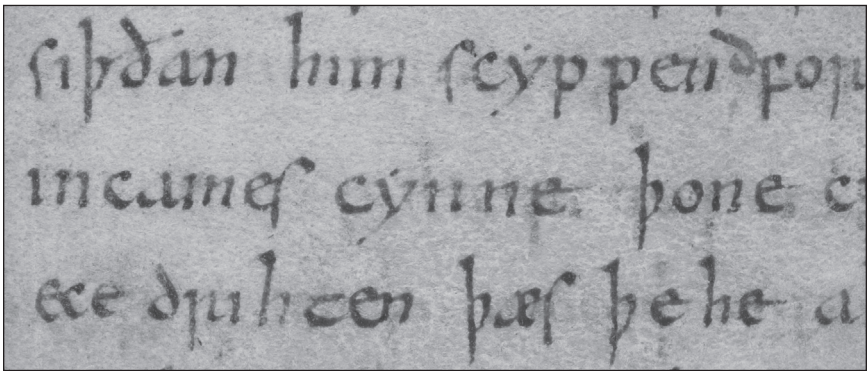 siþðan him scyppend for
incames cynne þone
ece drihten þæs þe he